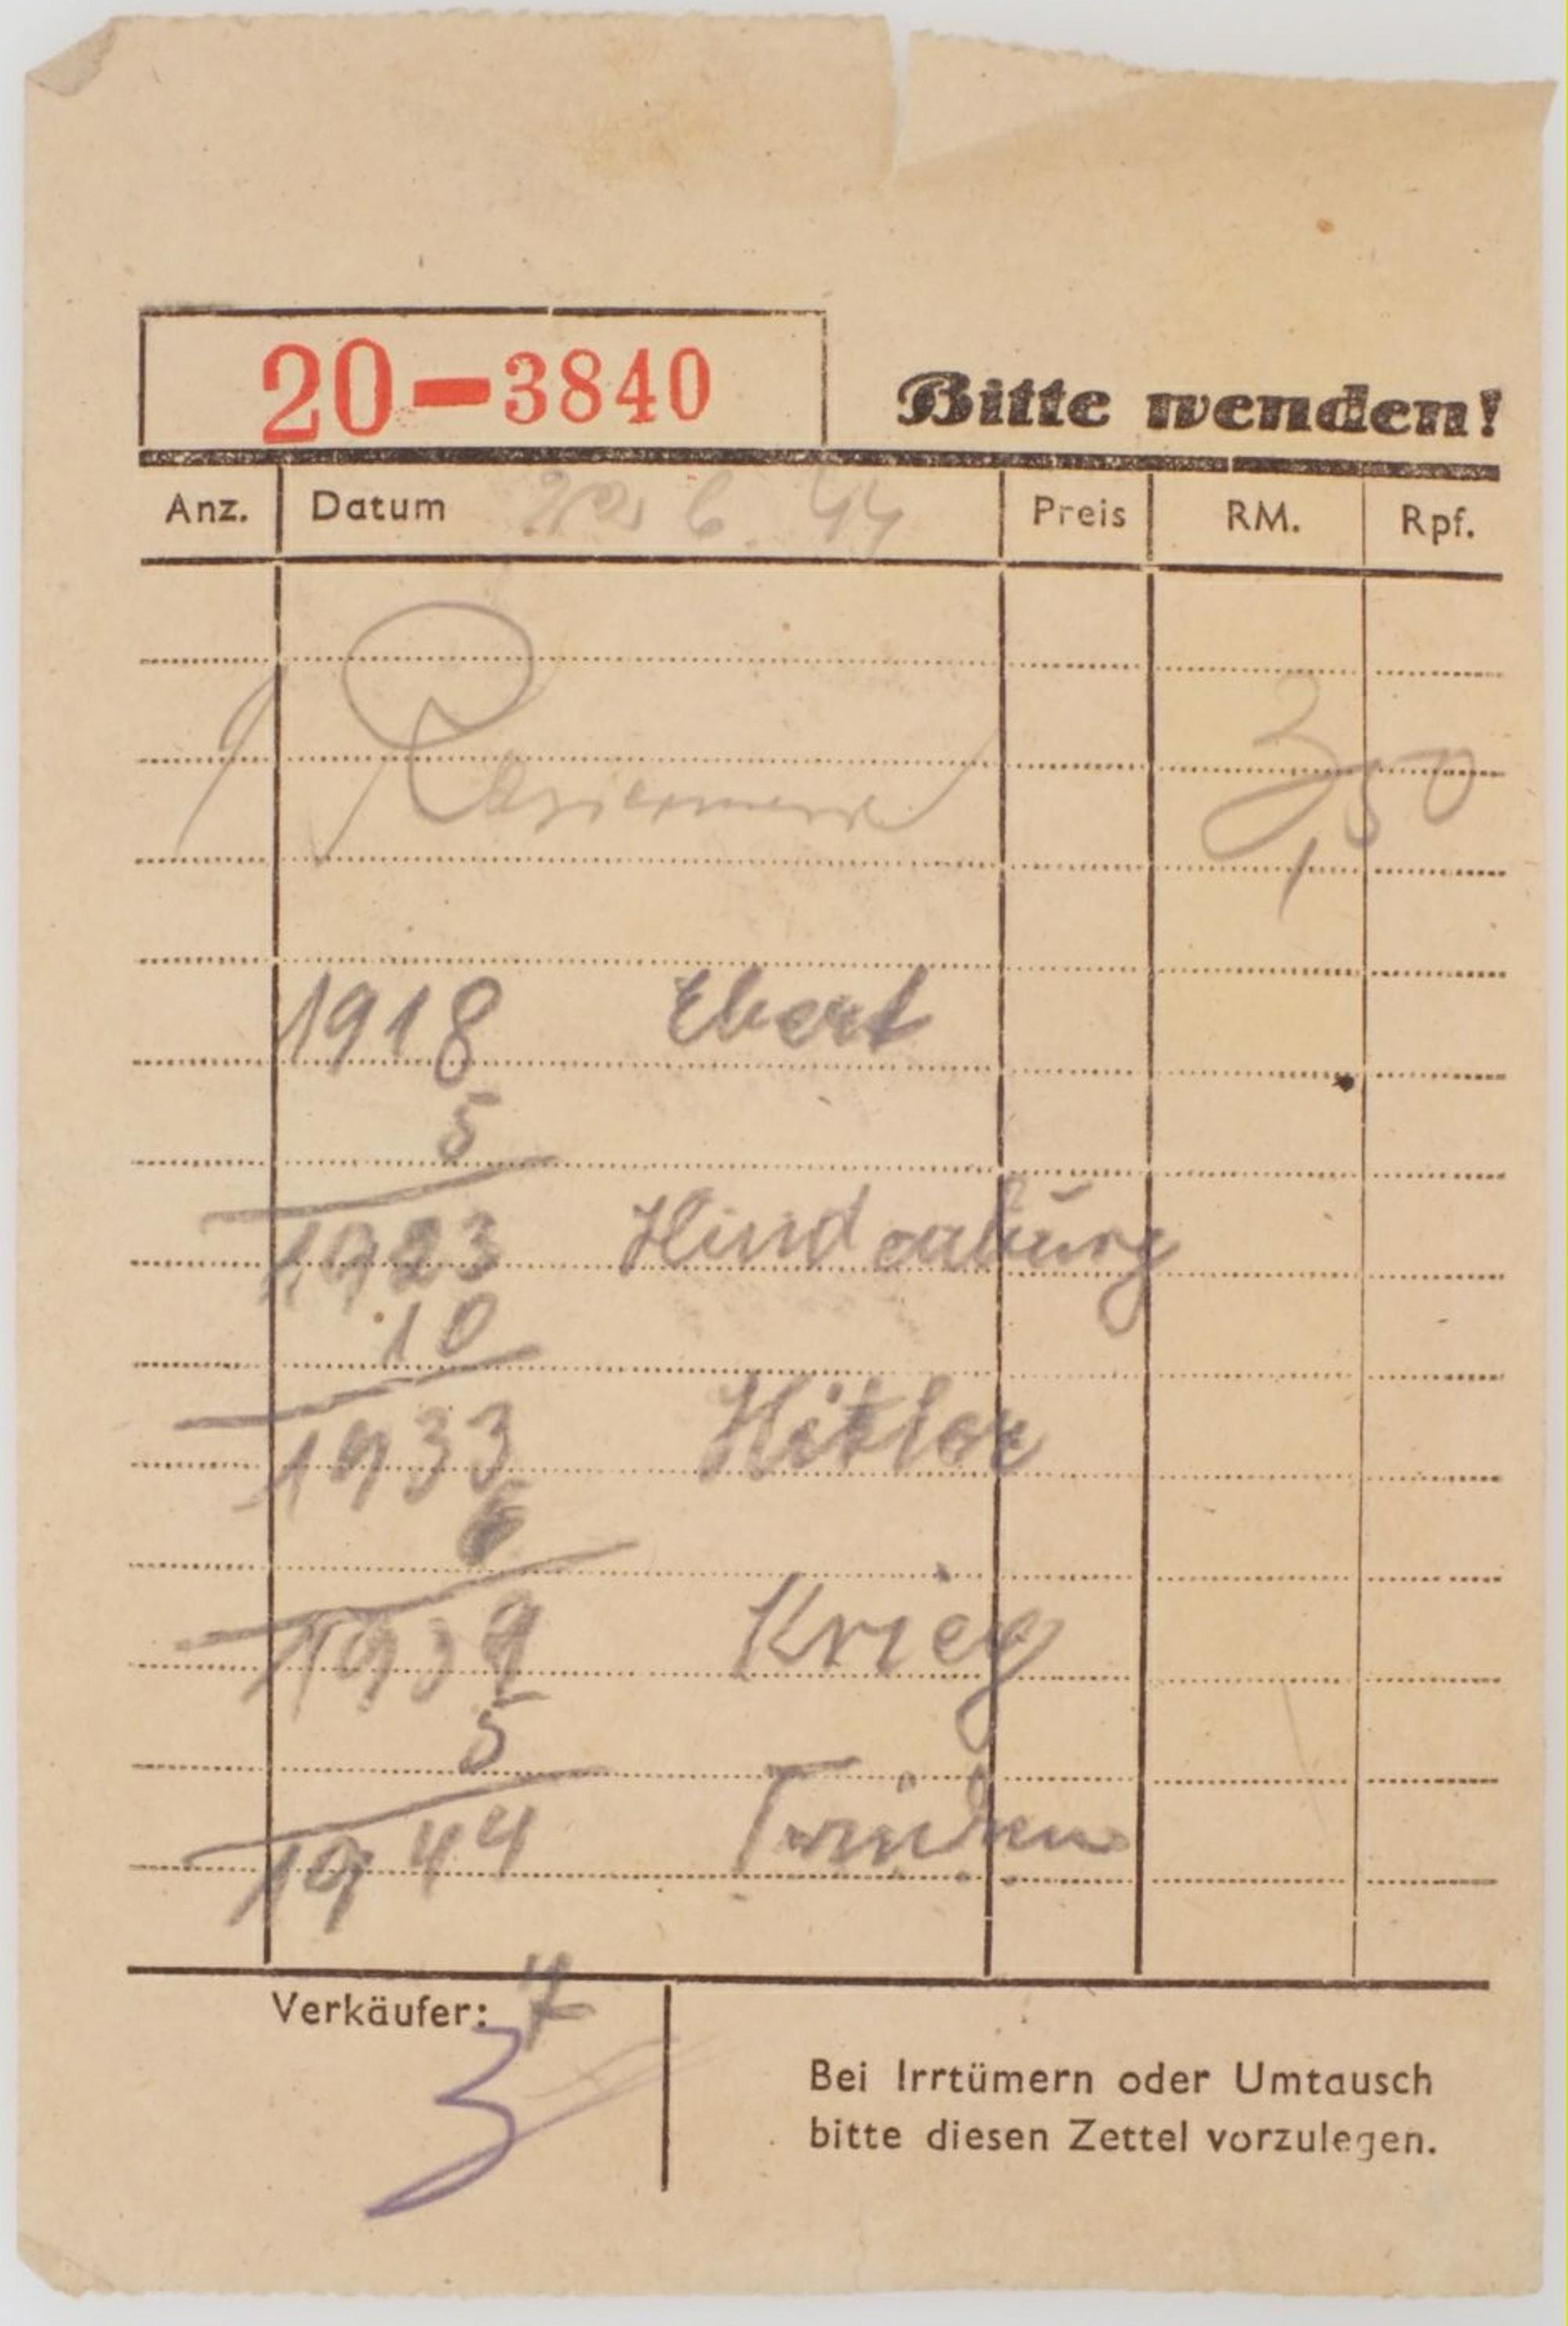 20-3840
Bitte wenden!
Anz. Datum 6. 44 Preis RM. Rpf.
1 3 50
1918 Ebert
5
1923 Hindenburg
10
1933 Hitler
6
1939 Krieg
5
1944
Verkäufer:
Bei Irrtümern oder Umtausch
bitte diesen Zettel vorzulegen.